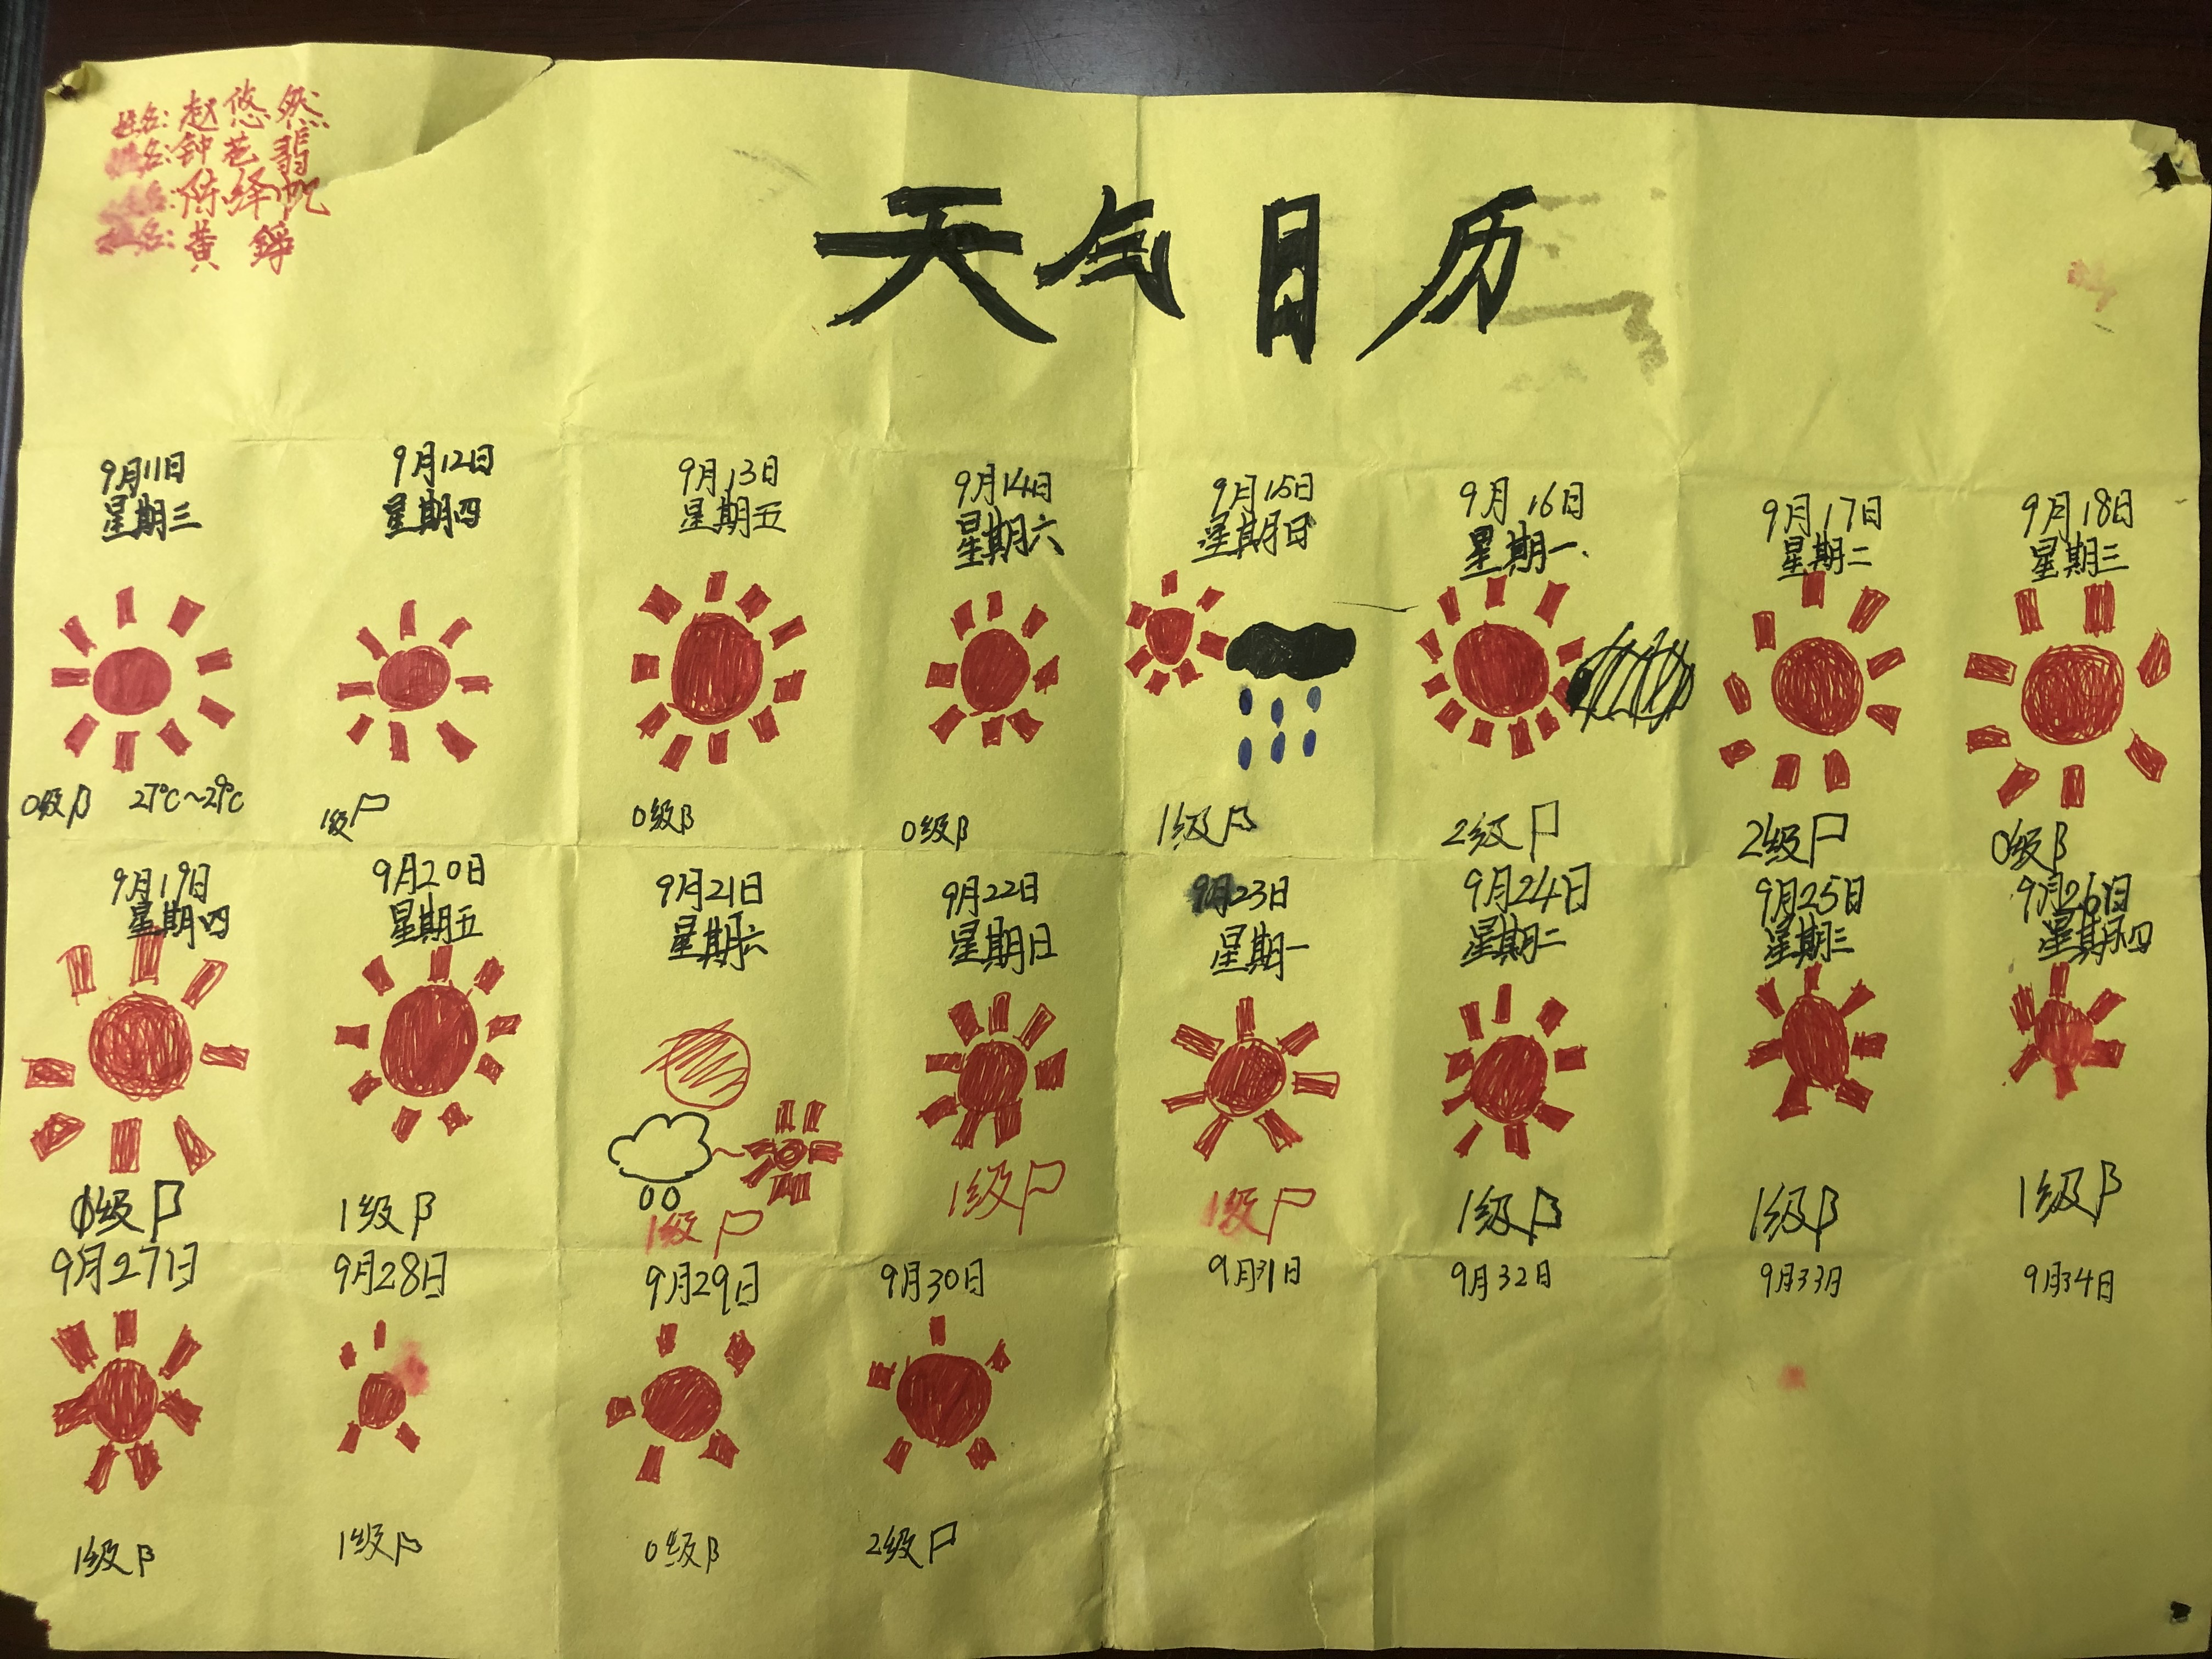 姓名:赵悠然
姓名:钟苍翡
姓名:陈绎帆
姓名:黄铮
天气日历
9月11日
星期三
0级 27℃~29℃
9月12日
星期四
1级
9月13日
星期五
0级
9月14日
星期六
0级
9月15日
星期日
1级
9月16日
星期一
2级
9月17日
星期二
2级
9月18日
星期三
0级
9月19日
星期四
0级
9月20日
星期五
1级
9月21日
星期六
1级
9月22日
星期日
1级
9月23日
星期一
1级
9月24日
星期二
1级
9月25日
星期三
1级
9月26日
星期四
1级
9月27日
1级
9月28日
1级
9月29日
0级
9月30日
2级
9月31日
9月32日
9月33日
9月34日